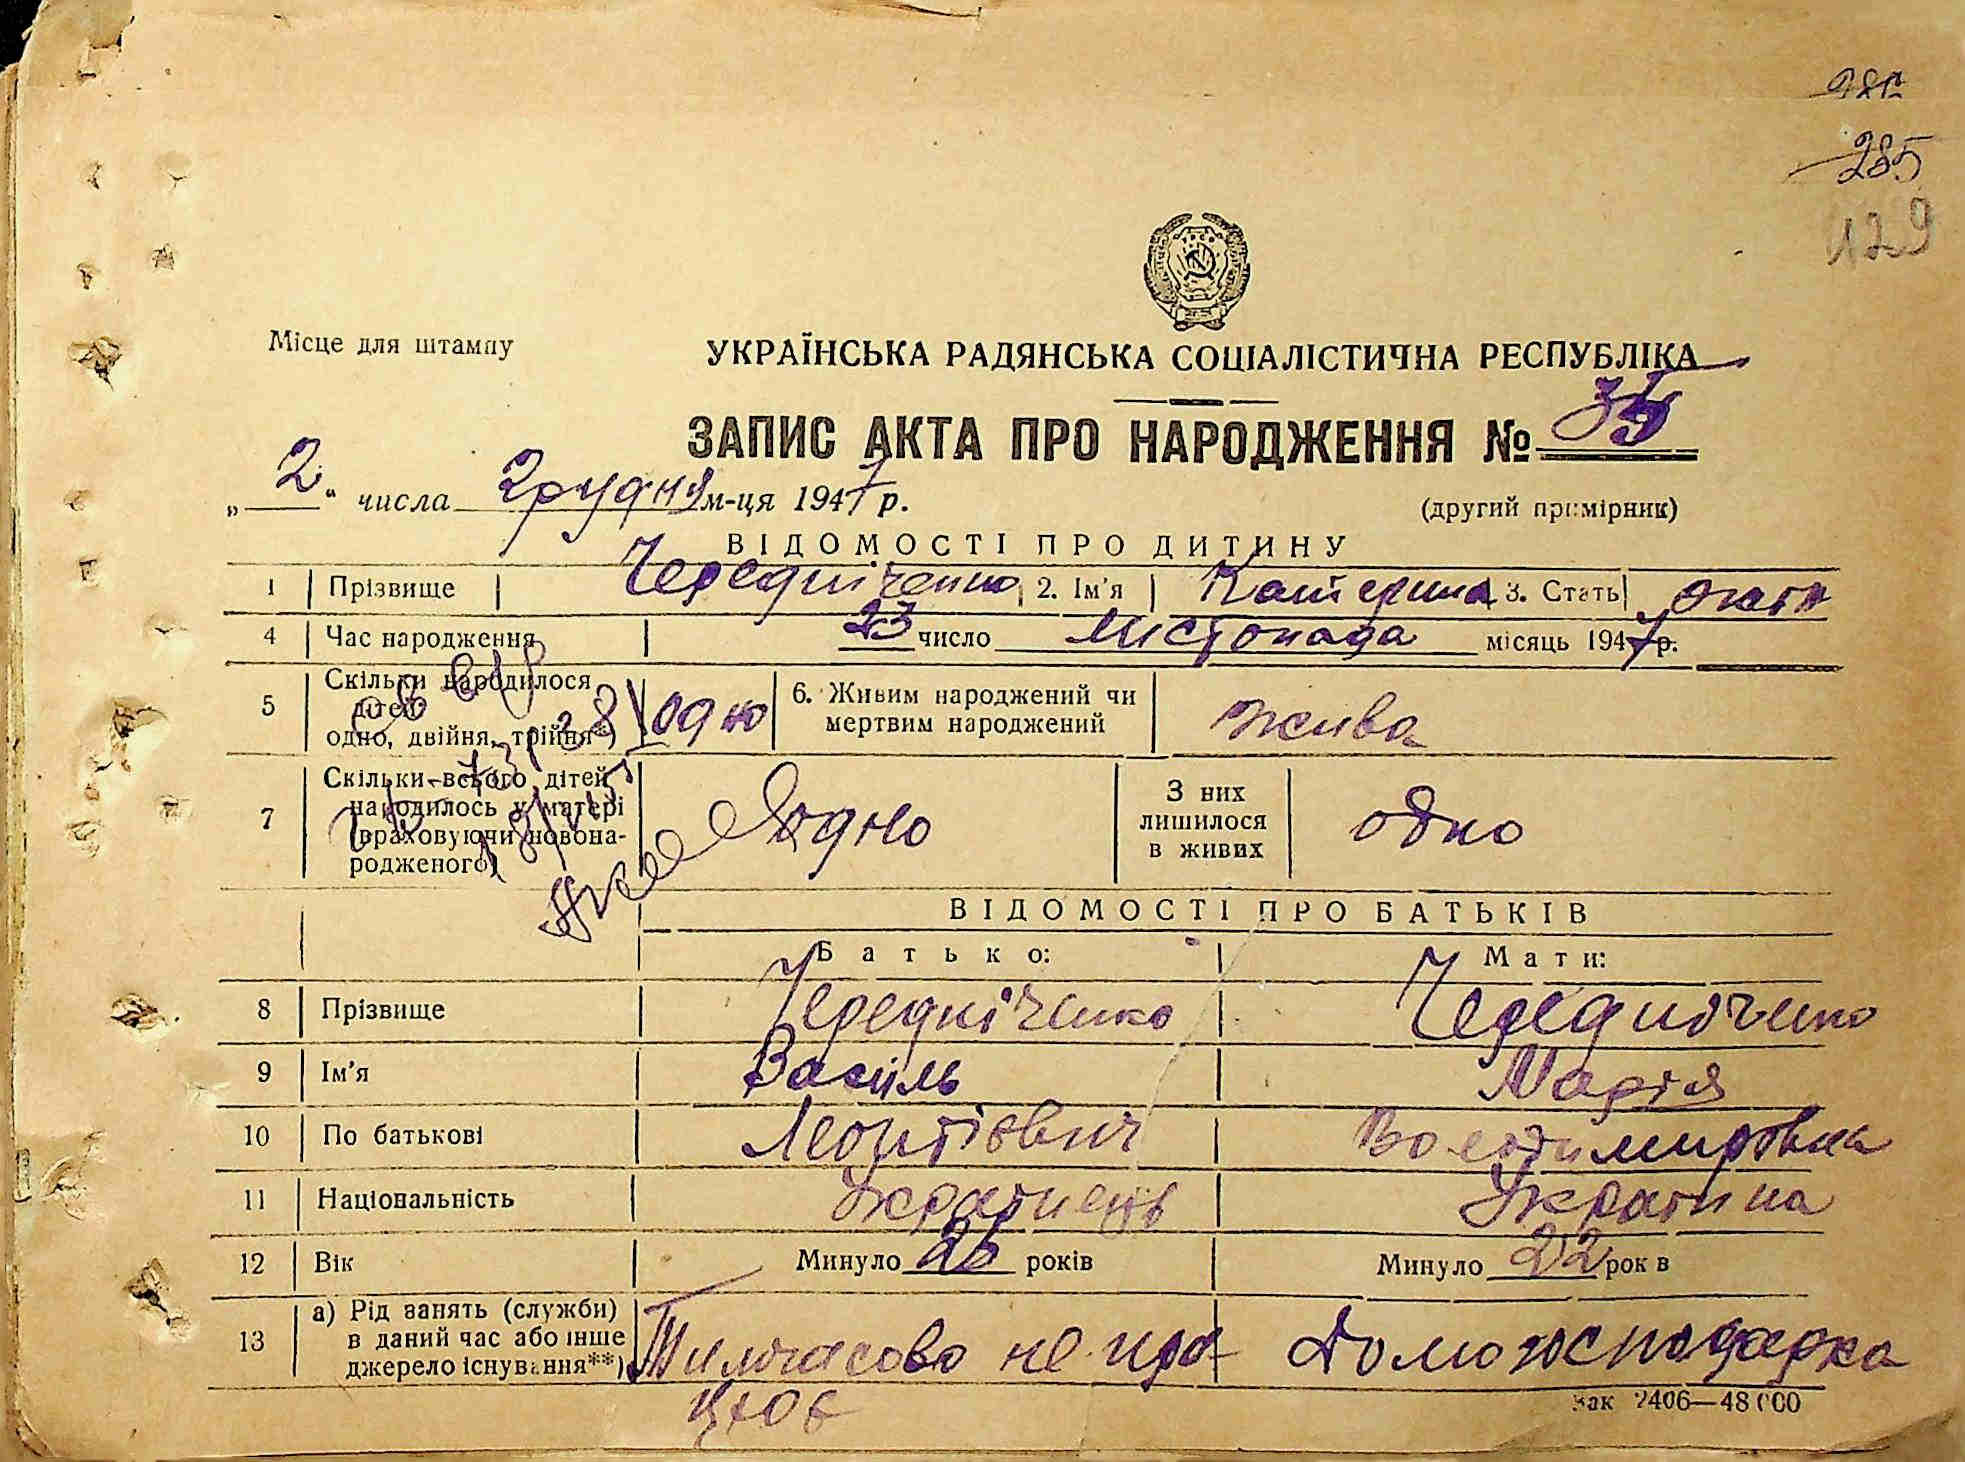 285
129
Місце для штампу
УКРАЇНСЬКА РАДЯНСЬКА СОЦІАЛІСТИЧНА РЕСПУБЛІКА
ЗАПИС АКТА ПРО НАРОДЖЕННЯ № 35
„2“ числа Грудня м-ця 1947 р.
(другий примірник)
ВІДОМОСТІ ПРО ДИТИНУ
1 Прізвище Чередніченко 2. Ім'я Катерина 3. Стать жіт
4 Час народження 23 число Листопада місяць 1947 р.
5 Скільки народилося дітей одно, двійня, трійня*) одно 6. Живим народжений чи мертвим народжений жива
7 Скільки всього дітей народилось у матері (враховуючи новонародженого) одно З них лишилося в живих одно
ВІДОМОСТІ ПРО БАТЬКІВ
Батько: Мати:
8 Прізвище Чередніченко Чередніченко
9 Ім'я Василь Марія
10 По батькові Леонтієвич Володимировна
11 Національність Українець Українка
12 Вік Минуло 26 років Минуло 22 років
13 а) Рід занять (служби) в даний час або інше джерело існування**) Тимчасово не пра- Домогосподарка
цює
Зак 2406—48000